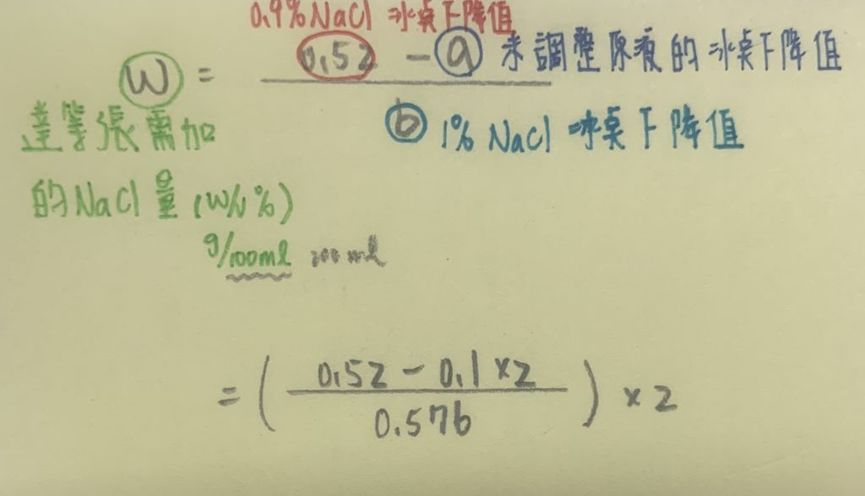 0.9% NaCl 冰点下降值
W = 0.52 - a 未調整原液的冰点下降值
b 1% NaCl 冰点下降值
達等張需加
的NaCl量 (W/v%)
g/100ml 200ml
= ( 0.52 - 0.1 x 2 / 0.576 ) x 2